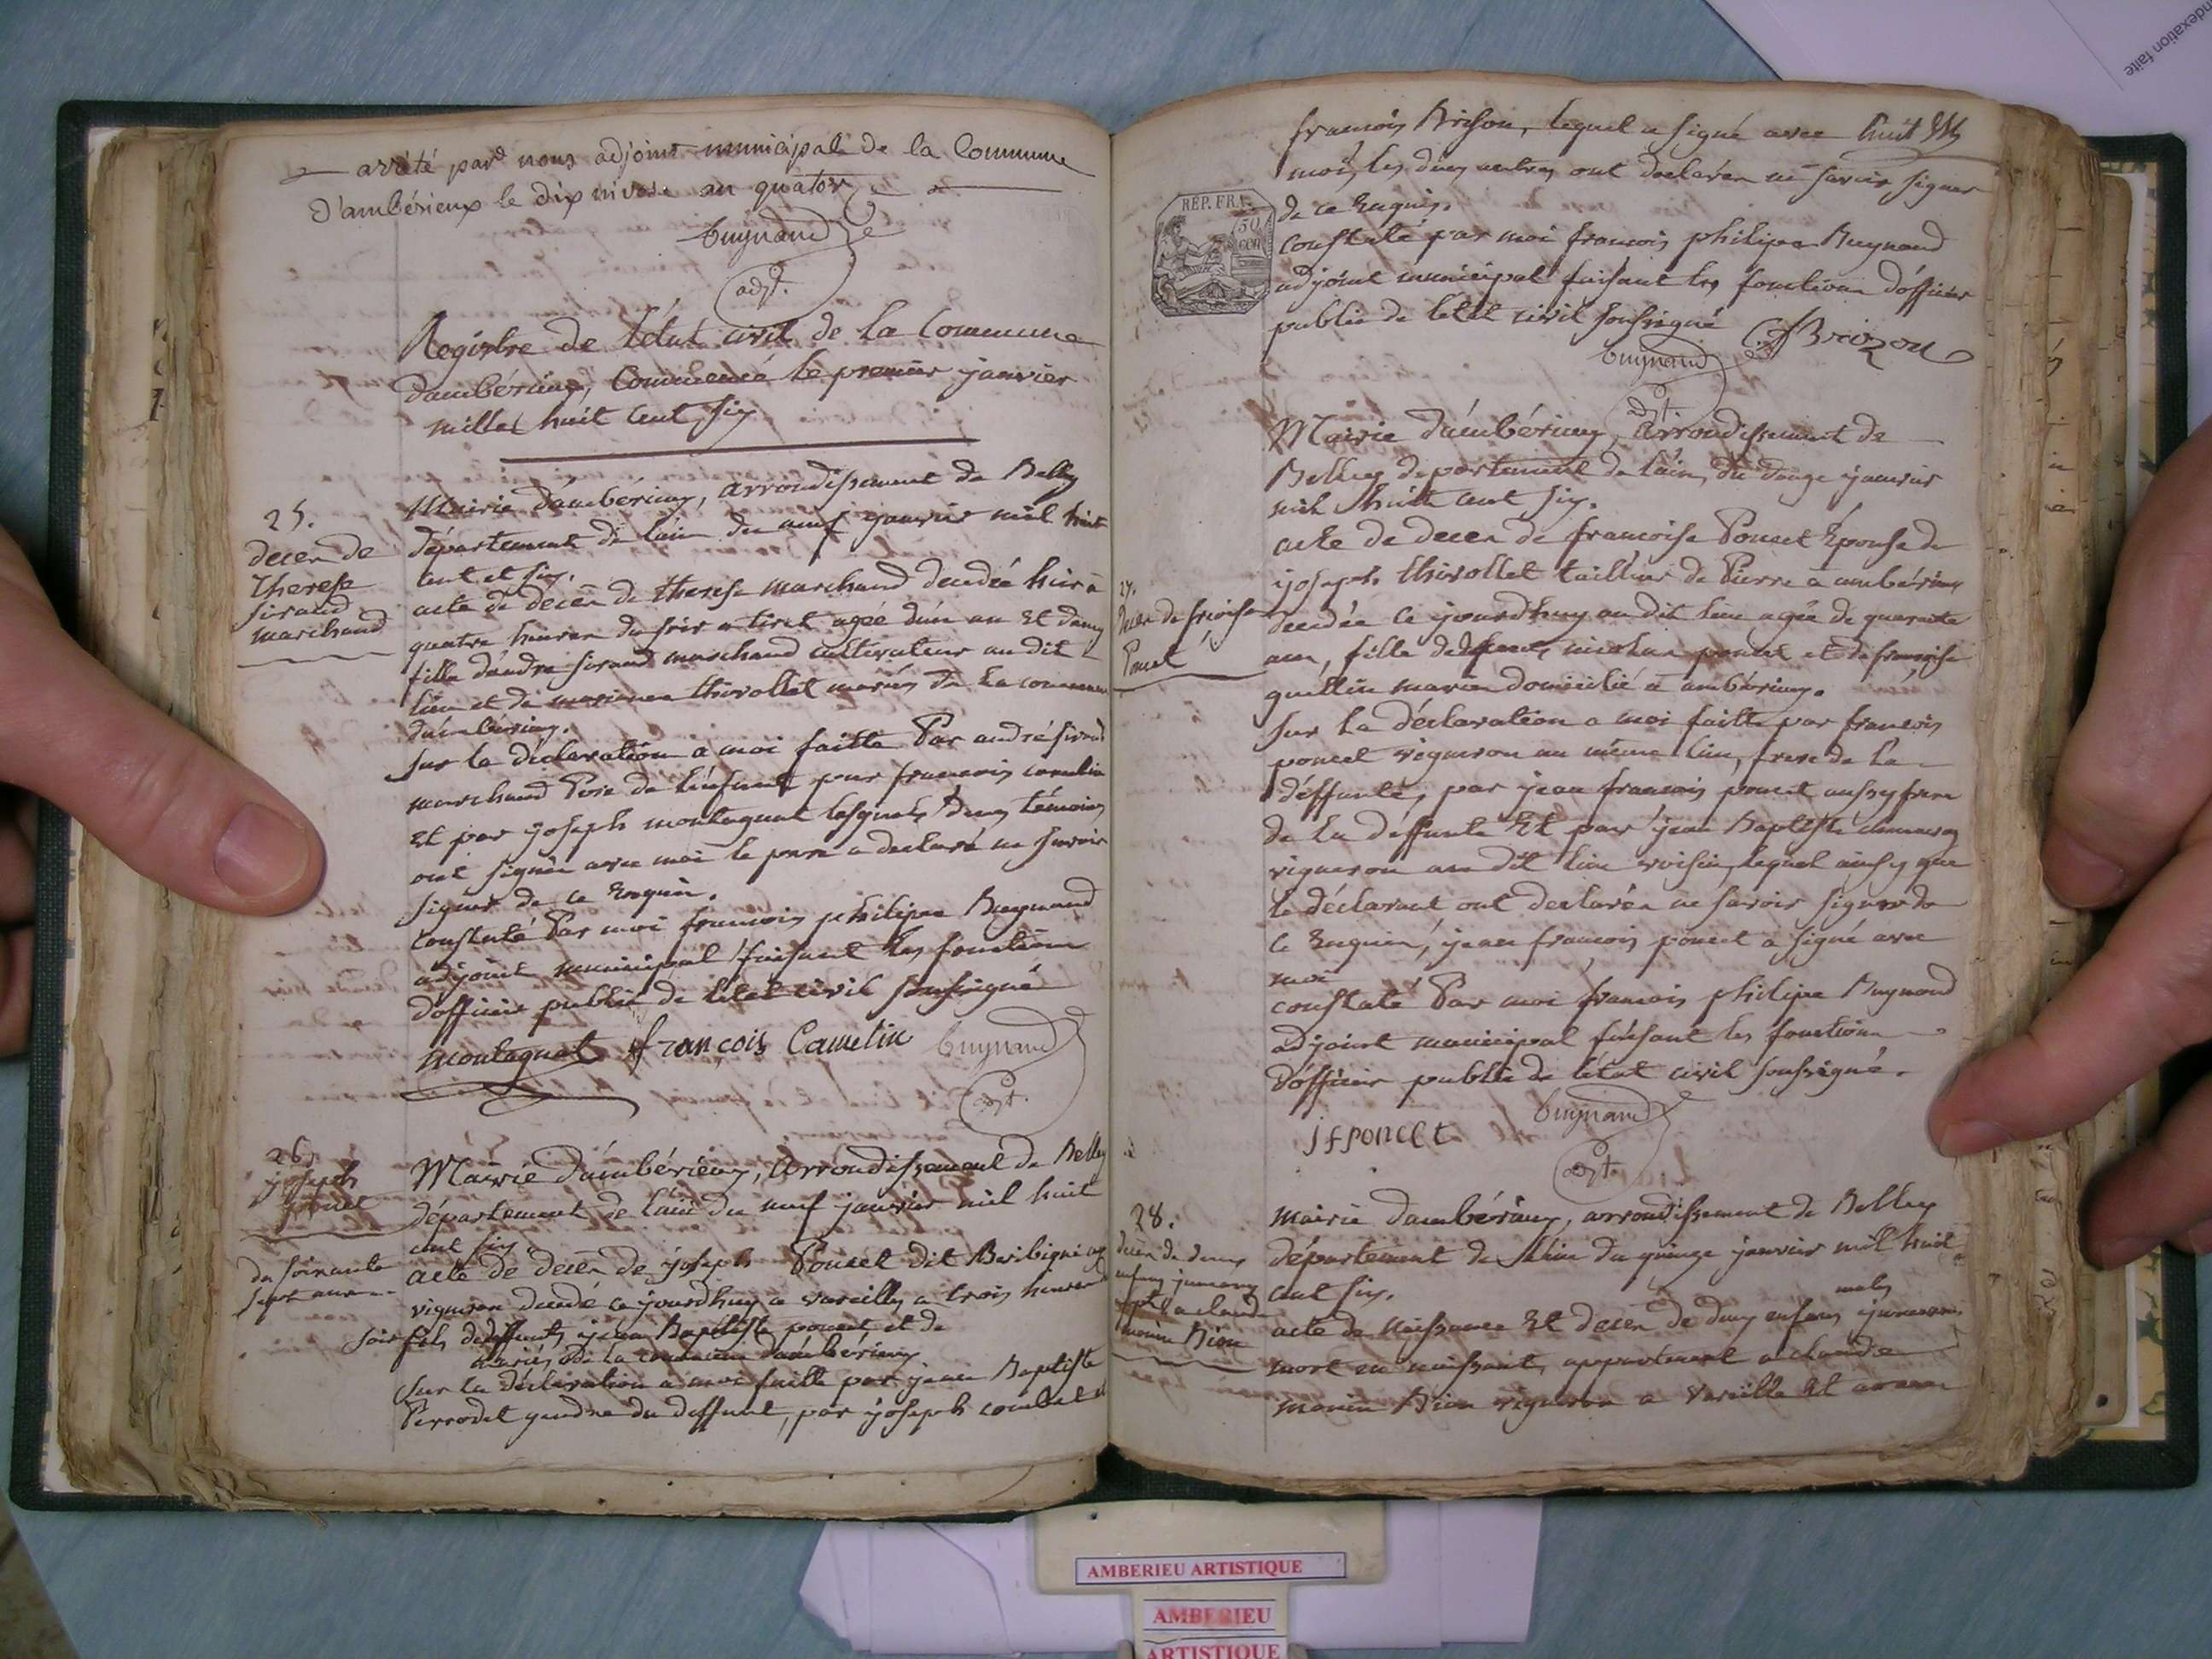 arrêté par nous adjoint municipal de la Commune
d'ambérieux le dix nivose an quatorze
buynand
adjt.
Registre de l'état civil de la Commune
dambérieux, Commencé le premier janvier
mille huit cent six
25.
deces de
Therese
sirand
marchand
Mairie dambérieux, arrondissement de Belley
département de lain du neuf janvier mil huit
cent et six.
acte de deces de therese marchand decedée hier a
quatre heures du soir a tiret agée d'un an et demy
fille dandre sirand marchand cultivateur au dit
lieu et de marianne thivollet mariés de la commune
dambérieux.
sur la declaration a moi faitte Par andré sirand
marchand Pere de lenfant par francois camelin
et par joseph montagnat lesquels deux témoins
ont signés avec moi le pere a declaré ne savoir
signer de ce Enquis.
constaté Par moi francois philipe Buynand
adjoint municipal faisant les fonctions
dofficier public de letat civil soussigné
montagnat françois Camelin buynand
adjt.
26.
joseph
poncet
de soixante
sept ans
Mairie dambérieux, arrondissement de Belley
département de lain du neuf janvier mil huit
cent six
acte de deces de joseph Poncet dit
vigneron decedé ce jourdhuy a vareilles a trois heures
soir fils de deffunts jean Baptiste poncet et de
mariés de la commune dambérieux
sur la déclaration a moi faitte par jean Baptiste
Perrodet gendre du deffunt, par joseph combet et
francois Brison, lequel a signé avec
moi, les deux autres ont declarés ne savoir signer
de ce Enquis.
REP. FRA.
50
cen
constaté par moi francois philipe Buynand
adjoint municipal faisant les fonctions d'officier
public de letat civil soussigné
Brizon
buynand
adjt.
Mairie d'ambérieux, arrondissement de
Belley departement de lain, du douze janvier
mil huit cent six.
27.
deces de
Poncet
acte de deces de francoise Poncet Épouse de
joseph thivollet tailleur de Pierre a ambérieux
decedée ce jourd'huy au dit lieu agée de quarante
ans, fille de nicolas poncet et de francoise
mariés domicilié a ambérieux.
sur la déclaration a moi faitte par francois
poncet vigneron au même lieu, frere de la
déffunte, par jean francois poncet aussy frere
de la déffunte et par jean Baptiste
vigneron au dit lieu voisin, lequel ainsy que
le déclarant ont declarés ne savoir signer de
ce Enquis, jean francois poncet a signé avec
moi
constaté Par moi francois philipe Buynand
adjoint municipal faisant les fonctions
d'officier public de l'état civil soussigné.
jfponcet
buynand
adjt.
28.
deces de deux
enfans jumeaux
a claude
morin Bion
mairie dambérieux, arrondissement de Belley
département de lain du quinze janvier mil huit
cent six.
males
acte de naissance et deces de deux enfans jumeaux
mort en naissant, appartenant a claude
morin Bion vigneron a Vareille et
indexation faite
AMBERIEU ARTISTIQUE
AMBERIEU
ARTISTIQUE